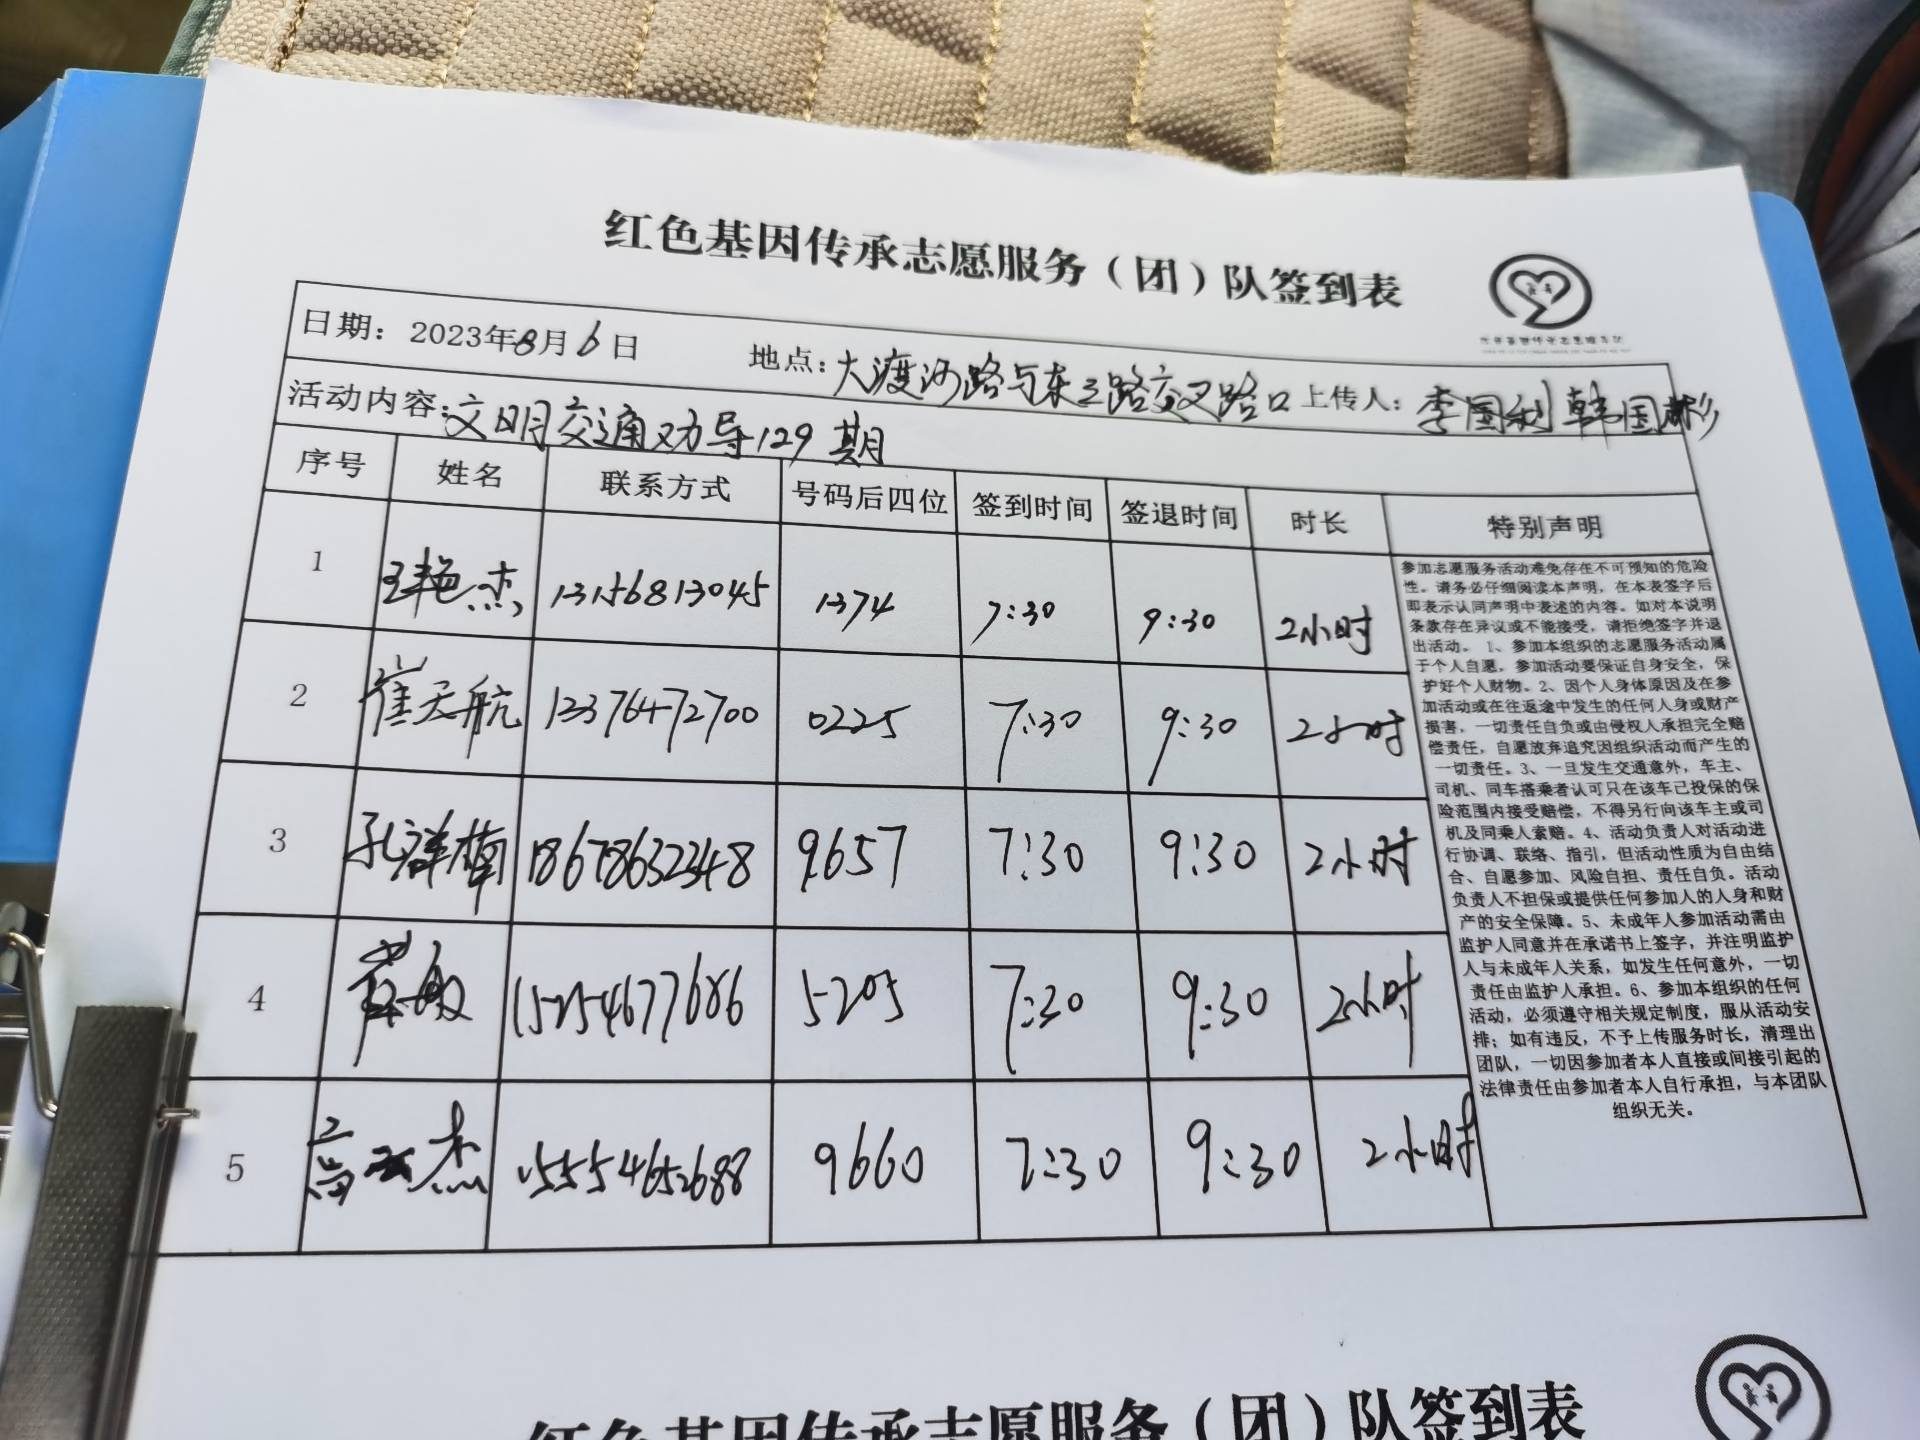 红色基因传承志愿服务（团）队签到表
日期：2023年8月6日 地点：大渡河路与东三路交叉路口 上传人：李国利 韩国彬
活动内容：文明交通劝导129期
序号 姓名 联系方式 号码后四位 签到时间 签退时间 时长 特别声明
1 王艳杰 13156813045 1374 7:30 9:30 2小时
2 崔天航 13376472700 0225 7:30 9:30 2小时
3 孔祥楠 18678632348 9657 7:30 9:30 2小时
4 15254677686 5205 7:30 9:30 2小时
5 高云杰 15554652688 9660 7:30 9:30 2小时
参加志愿服务活动难免存在不可预知的危险
性。请务必仔细阅读本声明，在本表签字后
即表示认同声明中表述的内容。如对本说明
条款存在异议或不能接受，请拒绝签字并退
出活动。 1、参加本组织的志愿服务活动属
于个人自愿，参加活动要保证自身安全，保
护好个人财物。2、因个人身体原因及在参
加活动或在往返途中发生的任何人身或财产
损害，一切责任自负或由侵权人承担完全赔
偿责任，自愿放弃追究因组织活动而产生的
一切责任。3、一旦发生交通意外，车主、
司机、同车搭乘者认可只在该车已投保的保
险范围内接受赔偿，不得另行向该车主或司
机及同乘人索赔。4、活动负责人对活动进
行协调、联络、指引，但活动性质为自由结
合、自愿参加、风险自担、责任自负。活动
负责人不担保或提供任何参加人的人身和财
产的安全保障。5、未成年人参加活动需由
监护人同意并在承诺书上签字，并注明监护
人与未成年人关系，如发生任何意外，一切
责任由监护人承担。6、参加本组织的任何
活动，必须遵守相关规定制度，服从活动安
排；如有违反，不予上传服务时长，清理出
团队，一切因参加者本人直接或间接引起的
法律责任由参加者本人自行承担，与本团队
组织无关。
红色基因传承志愿服务（团）队签到表